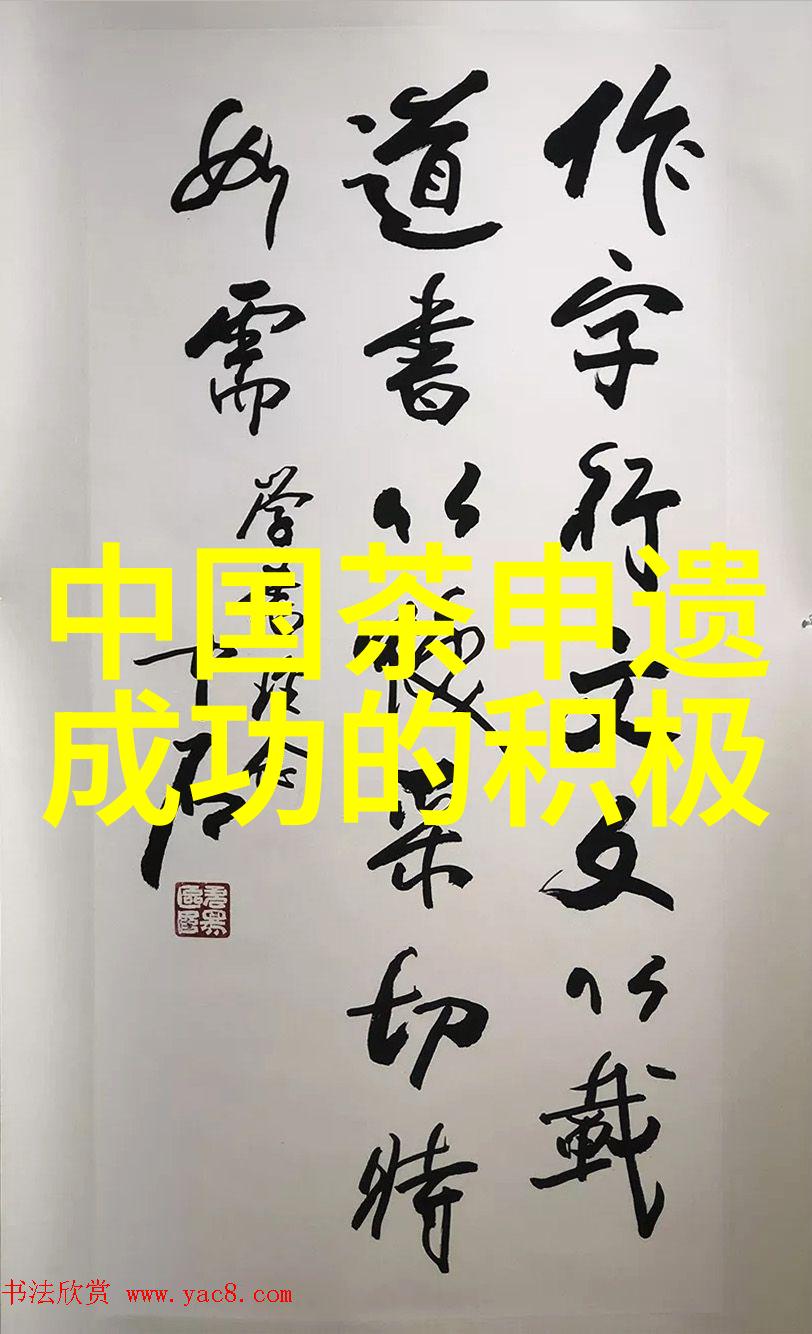 作字行文文以載
道書以采切時
如需
中国茶申遗
成功的积极
书法欣赏 www.yac8.com